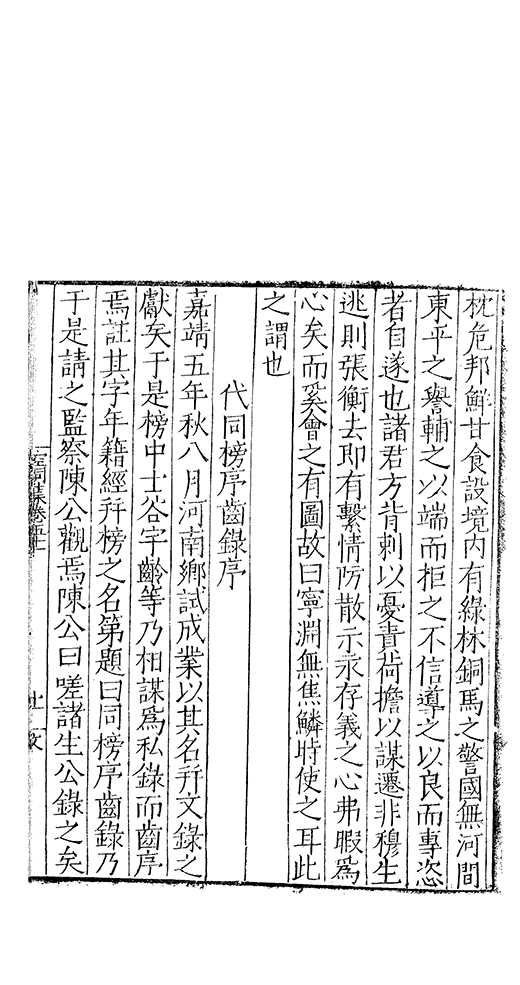 枕危邦鮮甘食設境内有綠林銅馬之警國無河間
東平之譽輔之以端而拒之不信導之以良而專恣
者自遂也諸君方背刺以憂責荷擔以謀遷非穆生
逃則張衡去即有繫情防散示永存義之心弗暇為
心矣而奚會之有圖故曰寧淵無焦鱗時使之耳此
之謂也
代同榜序齒錄序
嘉靖五年秋八月河南鄉試成業以其名并文錄之
獻矣于是榜中士谷宇齡等乃相謀爲私錄而齒序
焉註其字年籍經并榜之名第題曰同榜序齒錄乃
于是請之監察陳公觀焉陳公曰嗟諸生公錄之矣